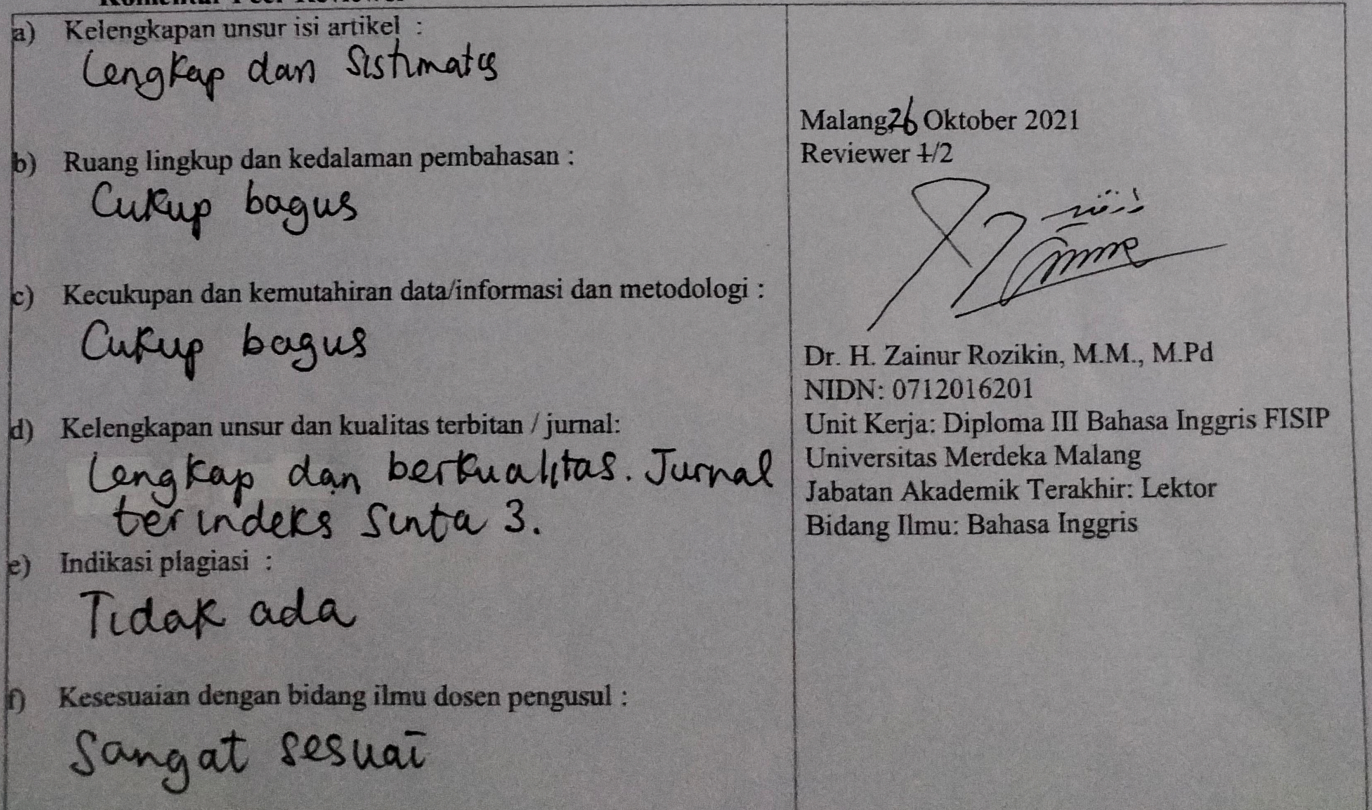 a) Kelengkapan unsur isi artikel :
Lengkap dan Sistimatis
b) Ruang lingkup dan kedalaman pembahasan :
Cukup bagus
c) Kecukupan dan kemutahiran data/informasi dan metodologi :
Cukup bagus
d) Kelengkapan unsur dan kualitas terbitan / jurnal:
Lengkap dan berkualitas. Jurnal
terindeks Sinta 3.
e) Indikasi plagiasi :
Tidak ada
f) Kesesuaian dengan bidang ilmu dosen pengusul :
Sangat sesuai
Malang 26 Oktober 2021
Reviewer 1/2
Dr. H. Zainur Rozikin, M.M., M.Pd
NIDN: 0712016201
Unit Kerja: Diploma III Bahasa Inggris FISIP
Universitas Merdeka Malang
Jabatan Akademik Terakhir: Lektor
Bidang Ilmu: Bahasa Inggris